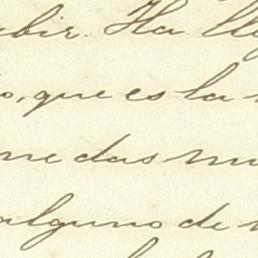 ubir. Ha lle
o, que es la
me das mu
alguno de